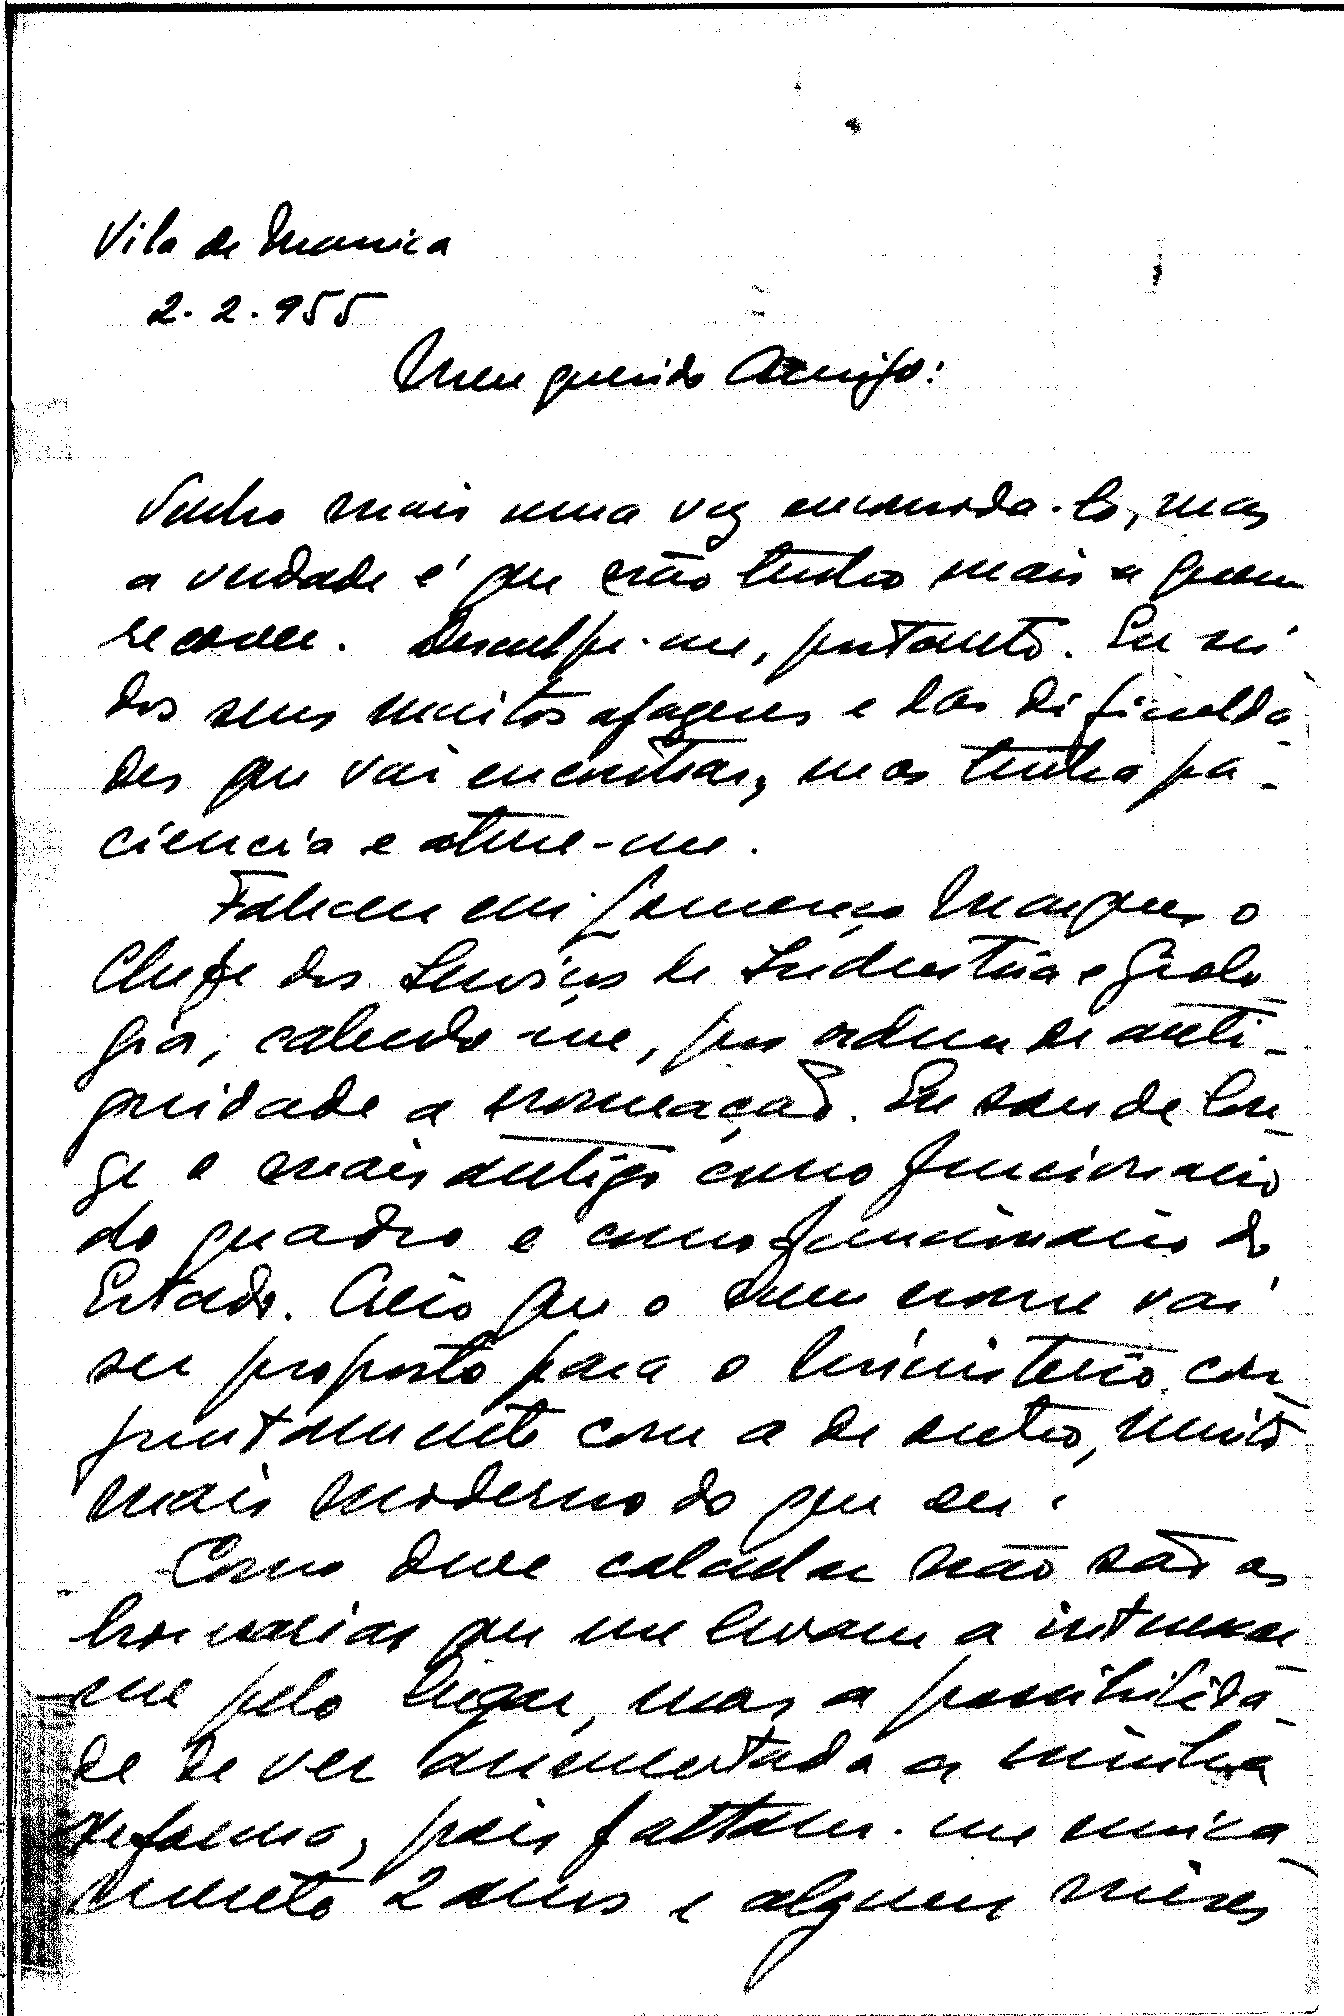 Vila de Manica
2.2.955
Meu querido Amigo:
Venho mais uma vez incomoda-lo, mas
a verdade é que não tenho mais a quem
recorrer. Desculpe-me, portanto. Eu sei
dos seus muitos afazeres e das dificulda
des que vai encontrar, mas tenha pa-
ciencia e ature-me.
Faleceu em Lourenço Marques o
Chefe dos Serviços de Industria e Geolo
gia, cabendo-me, por ordem de anti-
guidade a nomeação. Eu sou de lon
ge o mais antigo como funcionario
do quadro e como funcionario do
Estado. Creio que o meu nome vai
ser proposto para o Ministerio con
juntamente com a de outro, muito
mais moderno do que eu.
Como deve calcular não são as
honrarias que me levam a interessar
me pelo lugar, mas a possibilida
de de ver aumentada a minha
reforma, pois faltam-me unica
mente 2 anos e alguns mêses